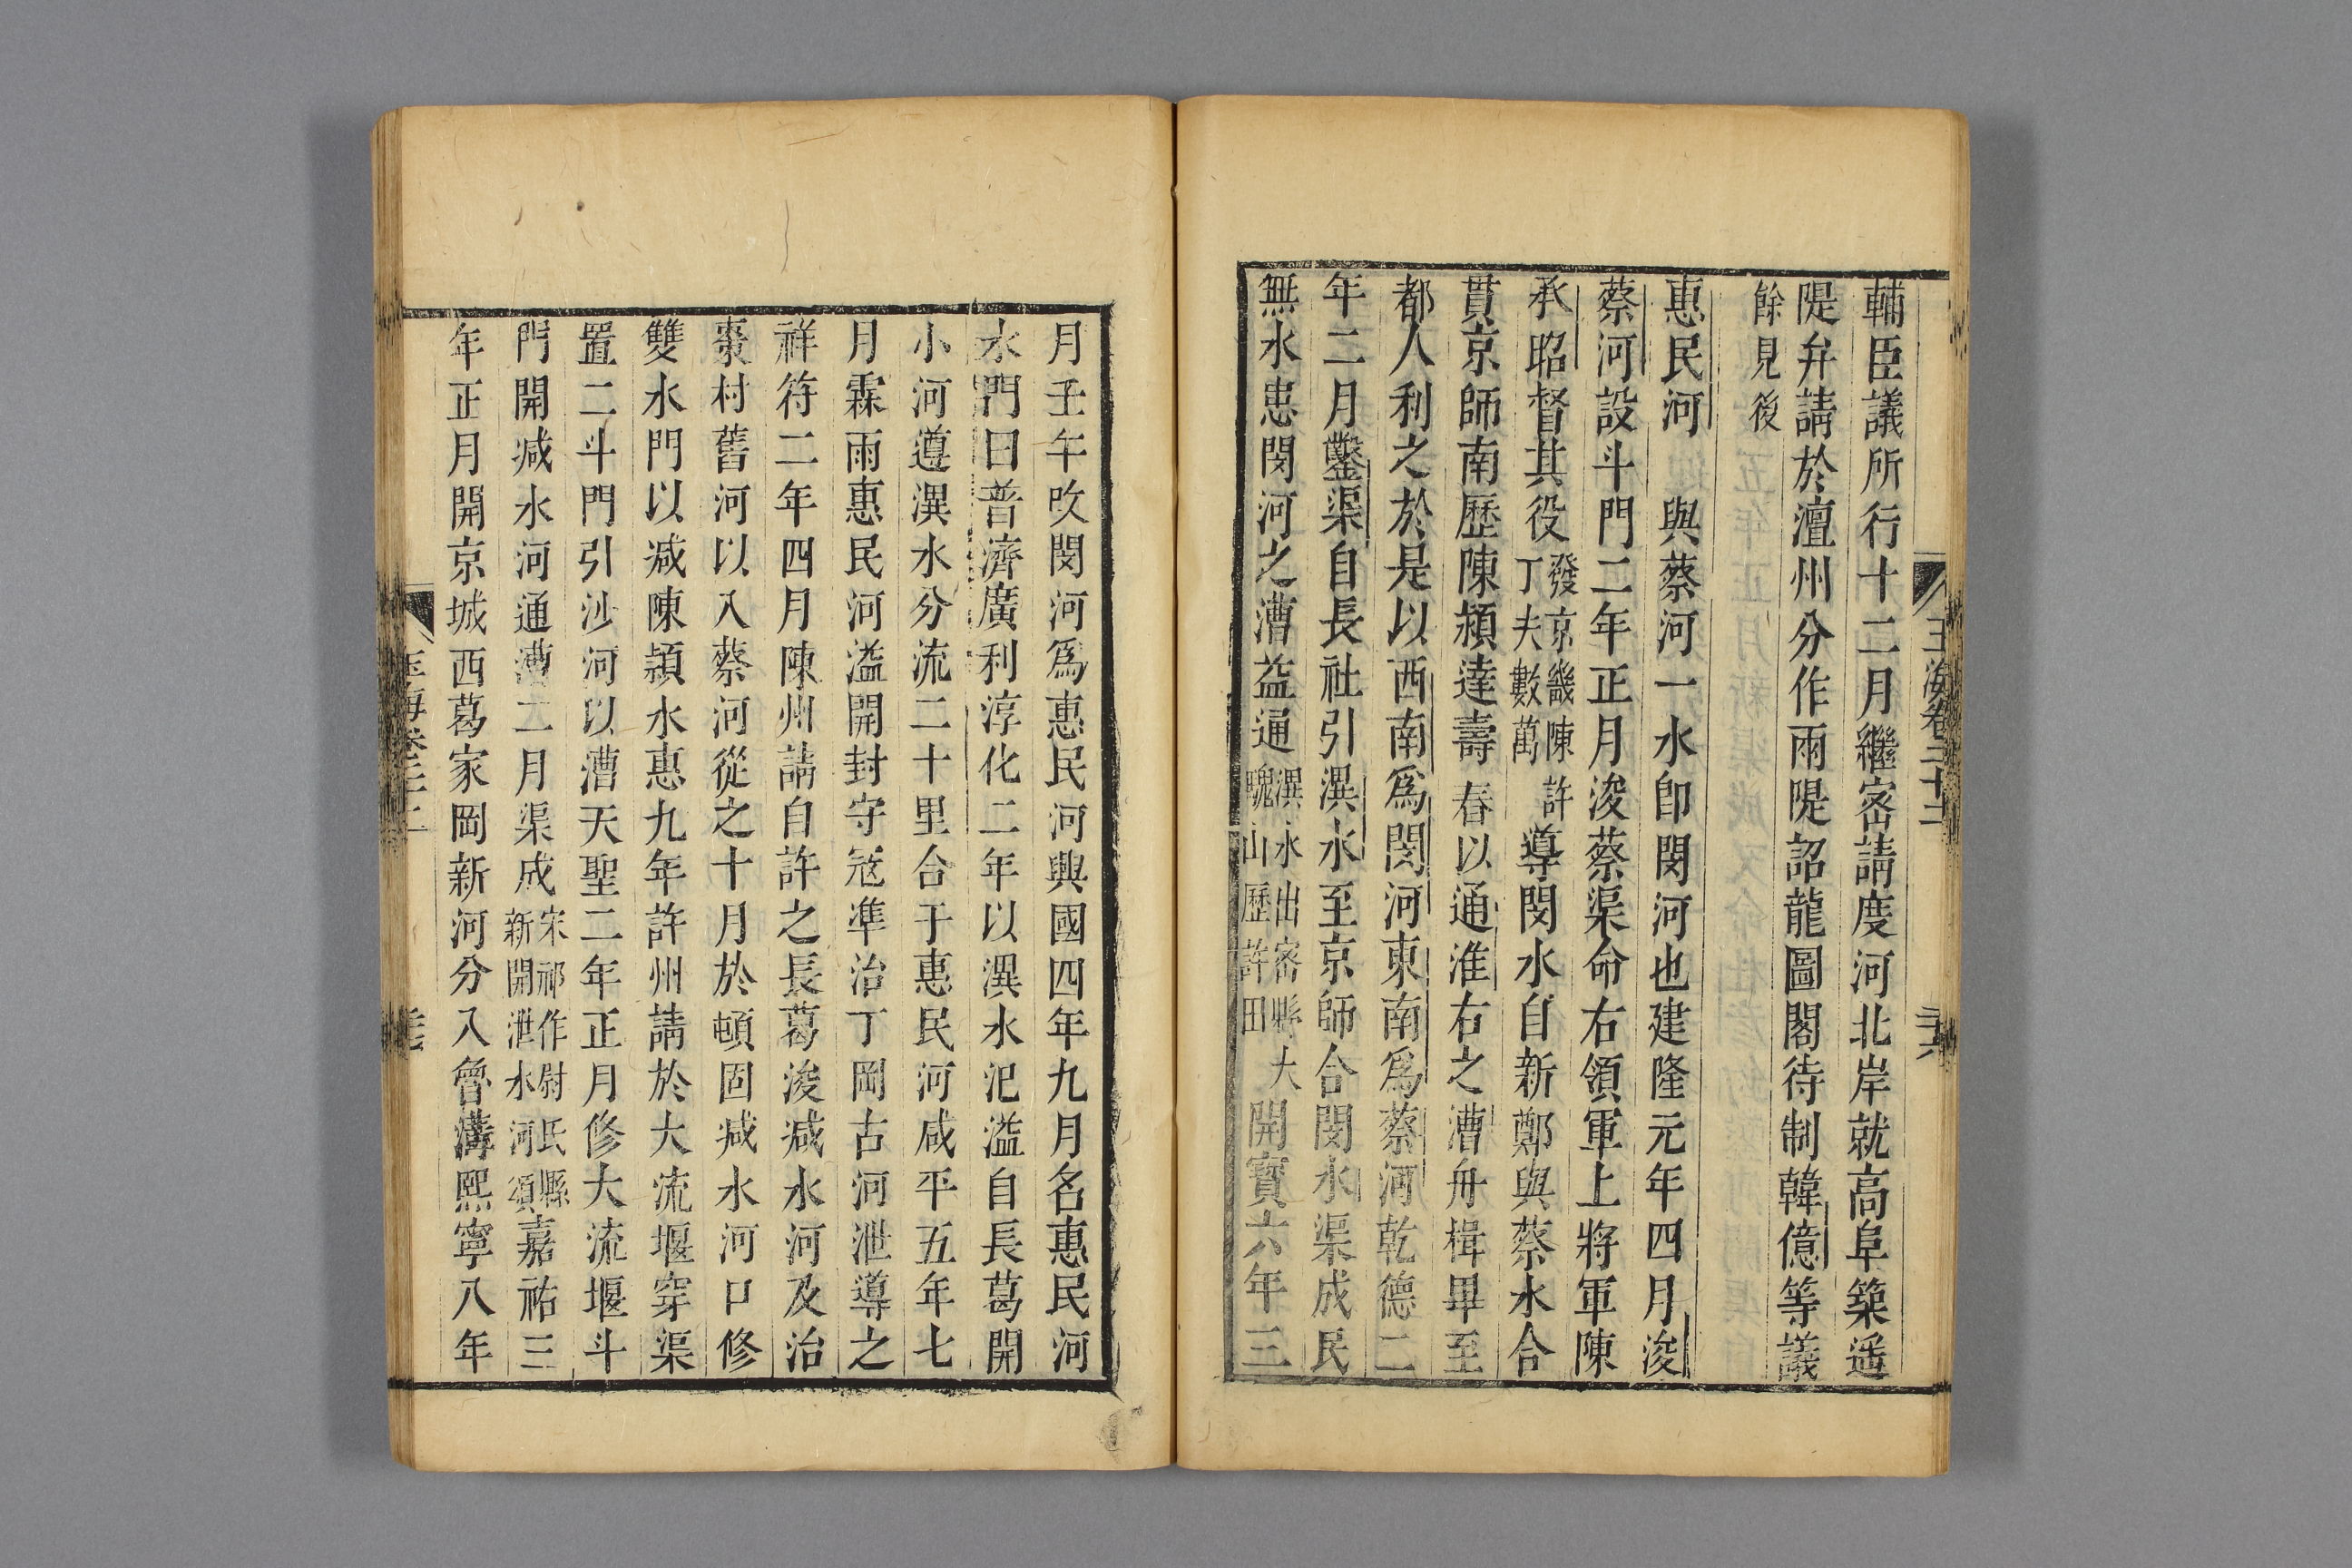 玉海卷二十二
二十六
輔臣議所行十二月繼密請度河北岸就高阜築遥
隄弁請於澶州分作兩隄詔龍圖閣待制韓億等議
餘見後
惠民河 與蔡河一水卽閔河也建隆元年四月浚
蔡河設斗門二年正月浚蔡渠命右領軍上將軍陳
承昭督其役發京畿陳許丁夫數萬導閔水自新鄭與蔡水合
貫京師南歷陳潁達壽春以通淮右之漕舟楫畢至
都人利之於是以西南爲閔河東南爲蔡河乾德二
年二月鑿渠自長社引潩水至京師合閔水渠成民
無水患閔河之漕益通潩水出密縣大騩山歷許田開寶六年三
月壬午攺閔河爲惠民河興國四年九月名惠民河
水門曰普濟廣利淳化二年以潩水汜溢自長葛開
小河導潩水分流二十里合于惠民河咸平五年七
月霖雨惠民河溢開封守寇準治丁岡古河泄導之
祥符二年四月陳州請自許之長葛浚减水河及治
棗村舊河以入蔡河從之十月於頓固减水河口修
雙水門以减陳潁水惠九年許州請於大流堰穿渠
置二斗門引沙河以漕天聖二年正月修大流堰斗
門開减水河通漕二月渠成宋祁作尉氏縣新開泄水河頌嘉祐三
年正月開京城西葛家岡新河分入魯溝熙寧八年